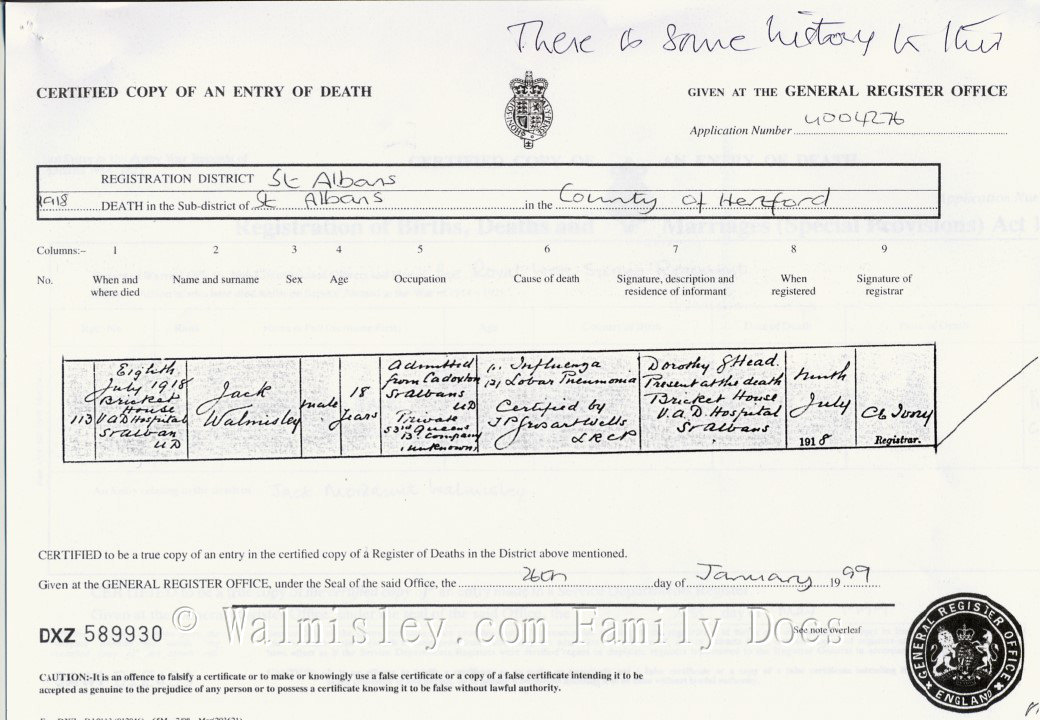 There is some history to this
CERTIFIED COPY OF AN ENTRY OF DEATH
GIVEN AT THE GENERAL REGISTER OFFICE
Application Number 4004276
REGISTRATION DISTRICT St Albans
1918 DEATH in the Sub-district of St Albans in the County of Hertford
Columns:- 1 2 3 4 5 6 7 8 9
No. When and where died Name and surname Sex Age Occupation Cause of death Signature, description and residence of informant When registered Signature of registrar
113
Eighth
July 1918
Bricket
House
V.A.D Hospital
St Alban
UD
Jack
Walmisley
male
18
years
Admitted
from Cadoxton
St Albans
UD
Private
53rd Queens
B. Company
(unknown)
(1. Influenza
(2) Lobar Pneumonia
Certified by
Wells
LRCP
Dorothy J Head.
Present at the death
Bricket House
V.a.D. Hospital
St Albans
Ninth
July
1918
Registrar.
CERTIFIED to be a true copy of an entry in the certified copy of a Register of Deaths in the District above mentioned.
Given at the GENERAL REGISTER OFFICE, under the Seal of the said Office, the 26th day of January 1999
© Walmisley.com Family Docs
DXZ 589930
See note overleaf
CAUTION:-It is an offence to falsify a certificate or to make or knowingly use a false certificate or a copy of a false certificate intending it to be
accepted as genuine to the prejudice of any person or to possess a certificate knowing it to be false without lawful authority.
GENERAL REGISTER OFFICE
ENGLAND